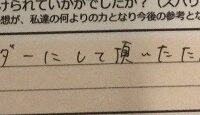 けられていかがでしたか？（スバリ
想が、私達の何よりの力となり今後の参考とな
ダーにして頂いたた